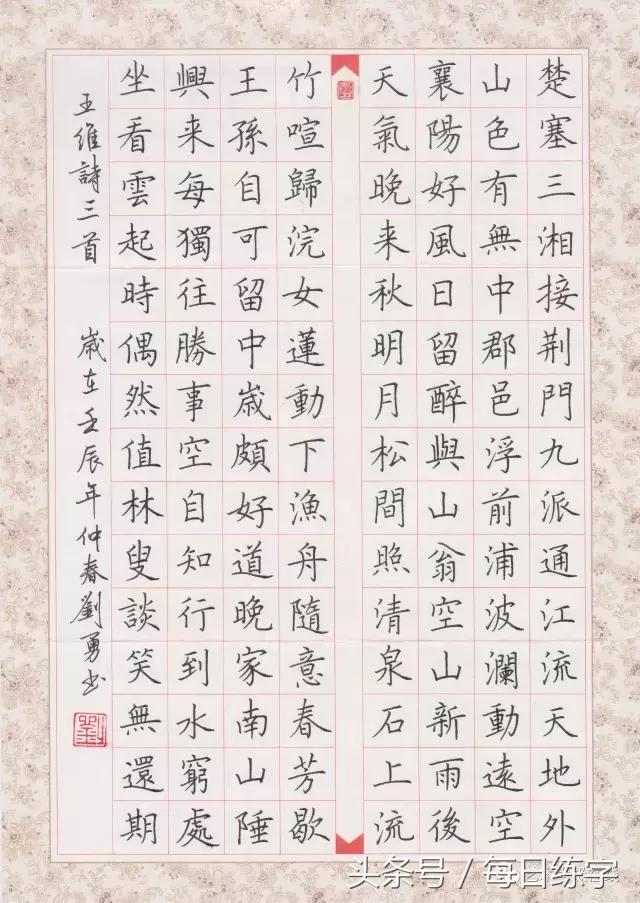 楚塞三湘接荆門九派通江流天地外
山色有無中郡邑浮前浦波瀾動遠空
襄陽好風日留醉與山翁空山新雨後
天氣晚来秋明月松間照清泉石上流
竹喧歸浣女蓮動下漁舟隨意春芳歇
王孫自可留中歲頗好道晚家南山陲
興来每獨往勝事空自知行到水窮處
坐看雲起時偶然值林叟談笑無還期
王維詩三首 歲在壬辰年仲春劉勇书
头条号 / 每日练字